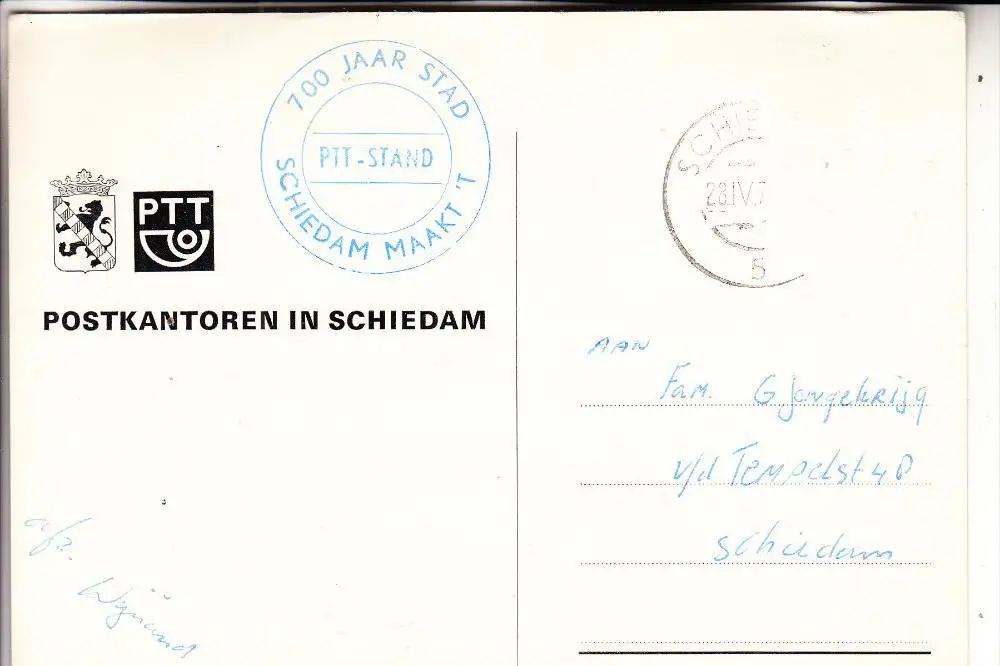 700 JAAR STAD
PTT-STAND
SCHIEDAM MAAKT 'T
SCHIE
28.IV.7
5
PTT
POSTKANTOREN IN SCHIEDAM
AAN
Fam. G Jongekrijg
v/d Tempelst 40
Schiedam
afz.